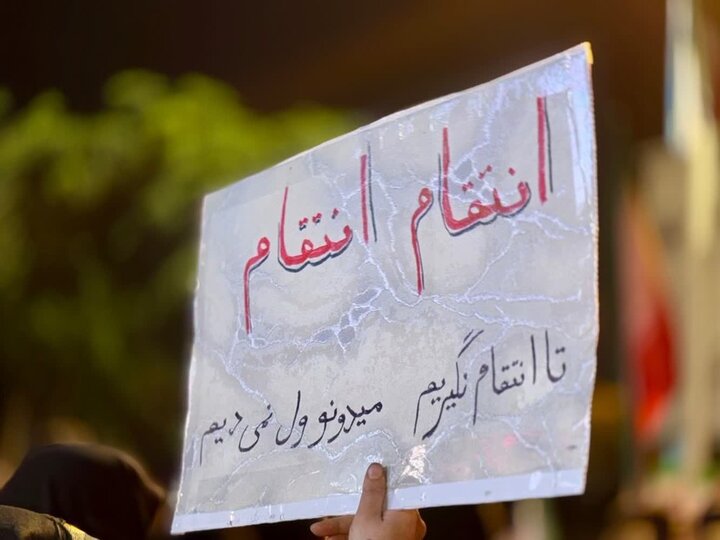 انتقام انتقام
تا انتقام نگیریم میدونو ول نمی دیم